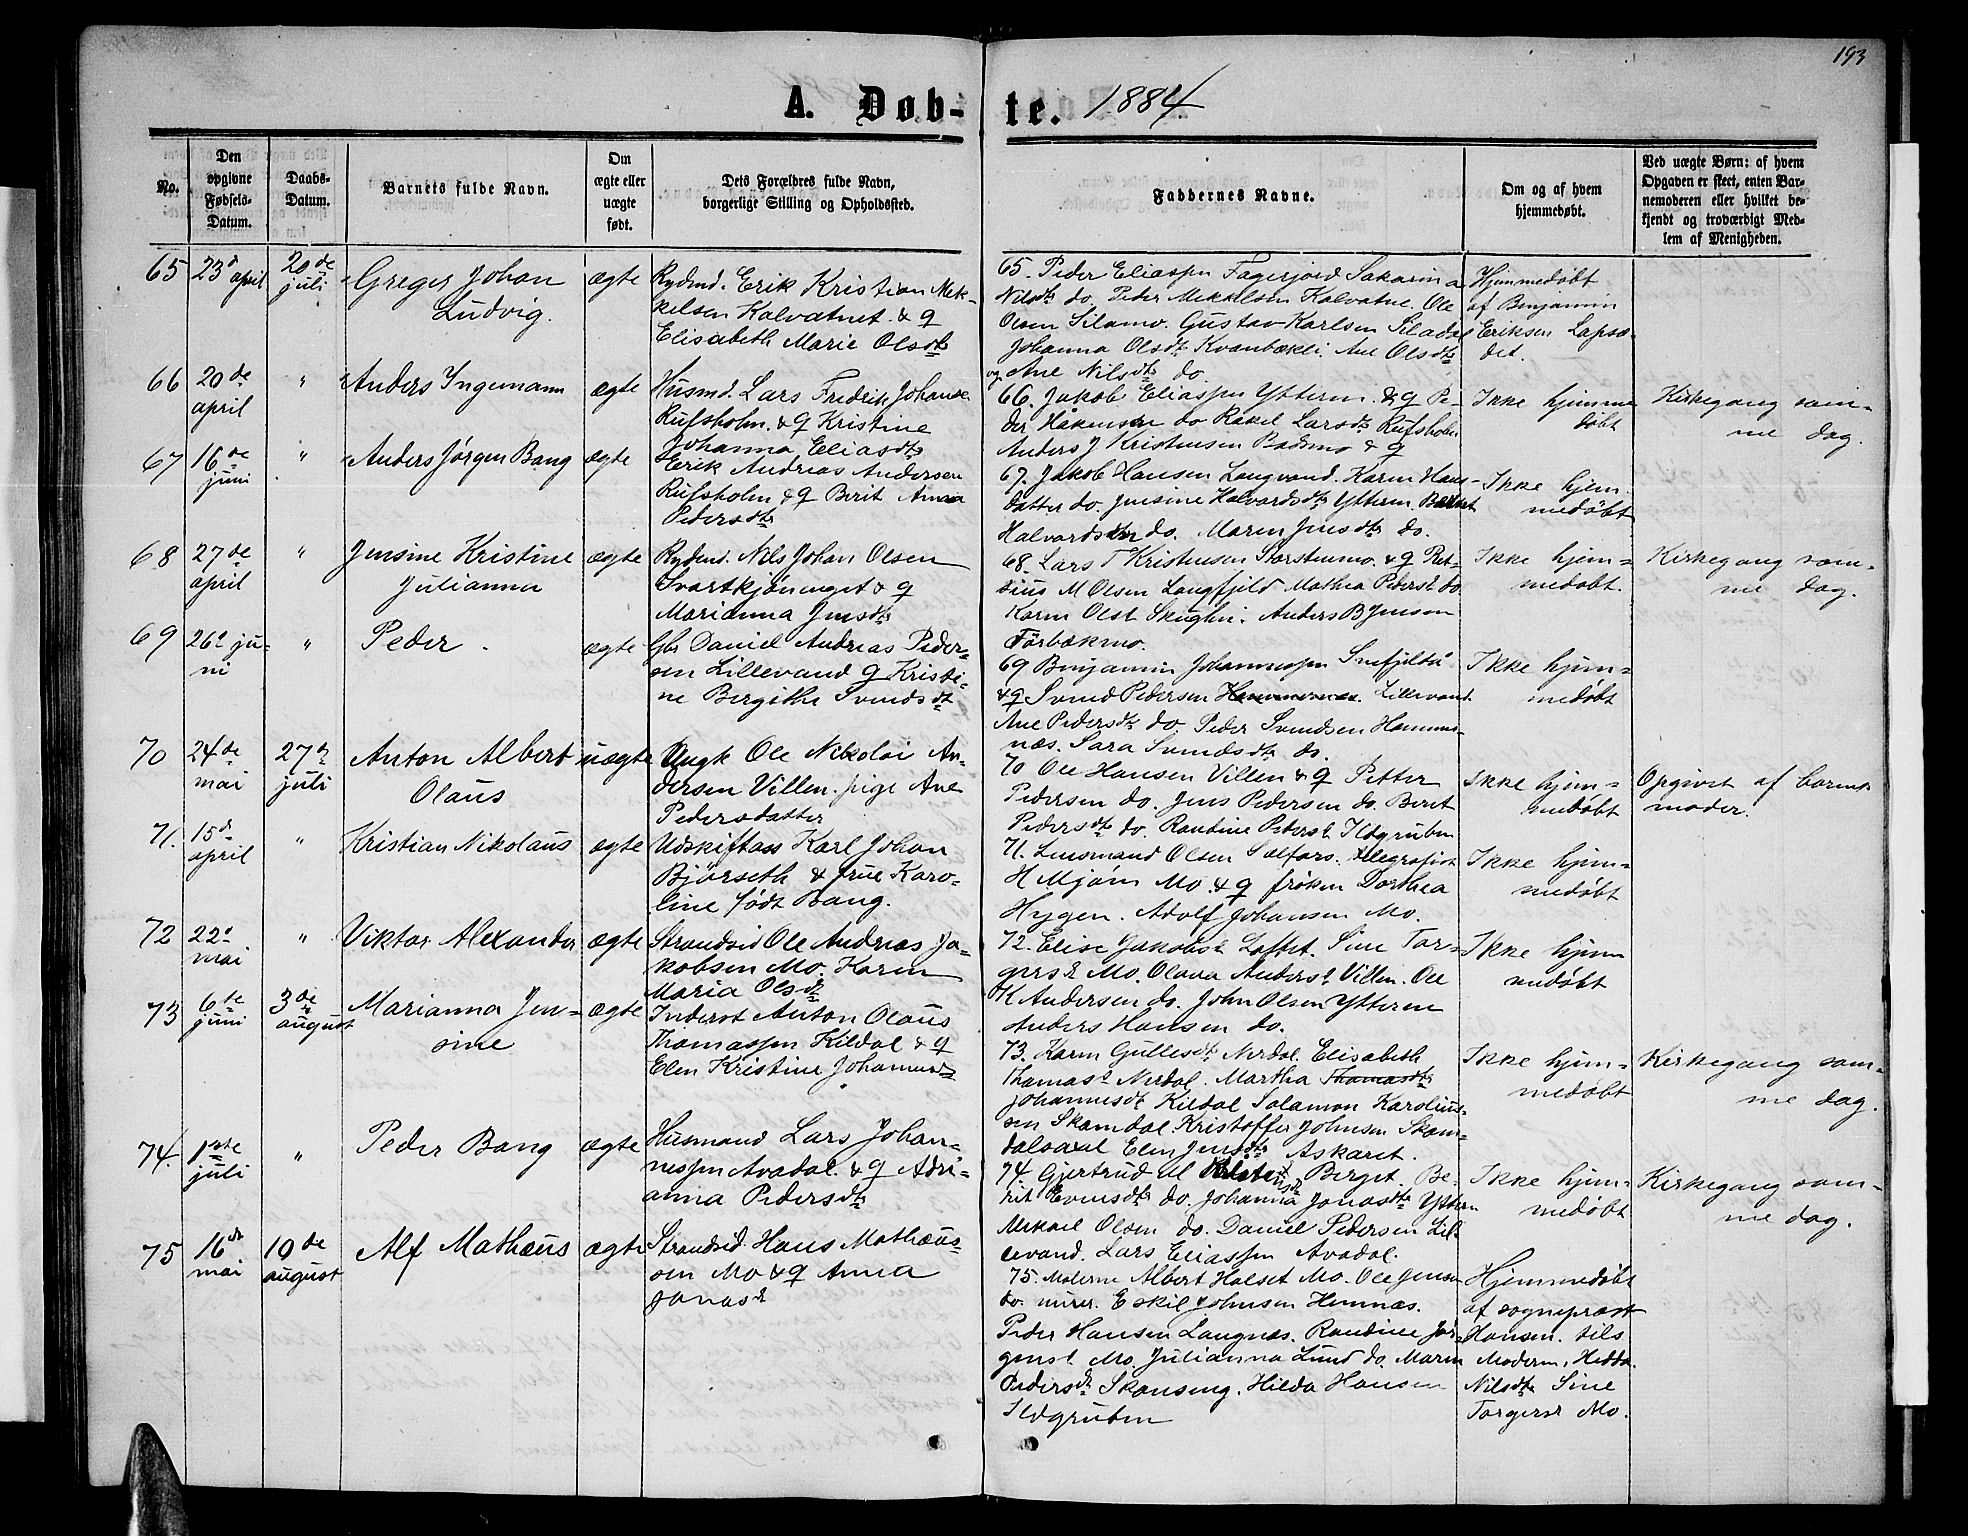 193
A. Døb-te. 1884
No.
Den opgivne Fødsels-Datum.
Daabs-Datum.
Barnets fulde Navn.
Om ægte eller uægte født.
Dets Forældres fulde Navn, borgerlige Stilling og Opholdssted.
Faddernes Navne.
Om og af hvem hjemmedøbt.
Ved uægte Børn: af hvem Opgaven er skeet, enten Barnemoderen eller hvilket bekjendt og troværdigt Medlem af Menigheden.
65 23d april
20de juli
Greger Johan
Ludvig.
ægte
Rydnd. Erik Kristian Mek-
kelsen Kalvatnet & q
Elisabeth Marie Olsdtr
65. Peder Eliassen Fagerjord Sakarina
Nilsdtr do. Peder Mikkelsen Kalvatne. Ole
Olsen Silamo. Gustav Karlsen Siladal
Johanna Olsdtr Kvanbækli. Ane Olsdtr
og Ane Nilsdtr do
Hjemmedøbt
af Benjamin
Eriksen Lapsæ-
det.
66 20de april
"
Anders Ingemann
ægte
Husmd. Lars Fredrik Johanse
Rufsholm. & q Kristine
Johanna Eliasdtr
66. Jakob Eliassen Ytteren. & q Pe-
der Håkensen do Rakel Larsdtr Rufsholm
Anders J Kristensen Badsmo & q
Ikke hjemme
døbt
Kirkegang sam-
me dag.
67 16de juni
"
Anders Jørgen Bang
ægte
Erik Andreas Andersen
Rufsholm & q Berit Anna
Pedersdtr
67. Jakob Hansen Langvand. Karen Hans-
datter do. Jensine Halvardsdtr Ytteren Berut
Halvardsen do. Maren Jensdtr do.
Ikke hjem
medøbt
68 27de april
"
Jensine Kristine
Julianna
ægte
Rydnd. Nils Johan Olsen
Svartkjønmoet & q
Marianna Jensdtr
68. Lars T Kristensen Storstenmo. & q Pet-
sius M Olsen Langfjeld Mathea Pedersd do
Karen Olsd Skuglin. Anders B Jensen
Førbækmo.
Ikke hjem-
medøbt.
Kirkegang sam-
me dag.
69 26d ju-
ni
"
Peder.
ægte
Gbr Daniel Andreas Peder-
sen Lillevand q Kristi-
ne Bergithe Svendsdt
69 Benjamin Johannessen Snefjeldå
& q Svend Pedersen Lillevand
Ane Pedersdtr do. Peder Svendsen Hammer-
næs. Sara Svendsdtr do.
Ikke hjem-
medøbt
70 24de mai
27d juli
Anton Albert
Olaus
uægte
Ungk Ole Nikolai An-
dersen Villen. pige Ane
Pedersdatter
70 Ole Hansen Villen & q Petter
Pedersen do. Jens Pedersen do. Beret
Pedersdtr do. Randine Pedersd Ildgruben
Ikke hjem-
medøbt
Opgivet af barne
moder.
71. 15d april
"
Kristian Nikolaus
ægte
Udskiftass Karl Johan
Bjørseth & frue Karo-
line født Bang.
71. Lensmand Olsen Selfors. telegrafist
H Mjøen Mo. & q frøken Dorthea
Hygen. Adolf Johansen Mo.
Ikke hjem-
medøbt
72 22d mai
"
Viktor Alexander
ægte
Strandsid Ole Andreas Ja-
kobsen Mo. Karen
Maria Olsd
72. Elise Jakobsd Loftet. Sine Tor-
gersd Mo. Olava Andersd Villen. Ole
K Andersen do. John Olsen Ytteren
Anders Hansen do.
Ikke hjem
medøbt
73 6te juni
3de august
Marianna Jen-
sine
ægte
Inderst Anton Olaus
Thomassen Kildal & q
Elen Kristine Johannesd
73. Karen Gullesdtr Nerdal. Elisabeth
Thomasd Nerdal. Martha Thomasdtr
Johannesdtr Kildal Salamon Karolius-
sen Skamdal. Kristoffer Johnsen Skam-
dalsaxel Elen Jensdtr Askaret.
Ikke hjem-
medøbt
Kirkegang sam-
me dag.
74. 1ste juli
"
Peder Bang
ægte
Husmand Lars Johan-
nessen Avadal. & q Adri-
anna Pedersdtr
74. Gjertrud M Berget. Be-
rit Evensdtr do. Johanna Jonasdtr Ytteren
Mikael Olsen do. Daniel Pedersen Lil-
levand. Lars Eliassen Avadal.
Ikke hjem-
medøbt
Kirkegang sam-
me dag.
75 16de mai
10de august
Alf Mathæus
ægte
Strandsid. Hans Mathæus-
sen Mo & q Anna
Jonasd
75. Malerne Albert Halset Mo. Ole Jensen
do. murer. Eskil Johnsen Hemnæs.
Peder Hansen Langnæs. Randine Jør-
gensd Mo. Julianna Lund do. Maren
Pedersd Skansing. Hilda Hansen
Ildgruben
Hjemmedøbt
af sognepræst
Hansen. tils
Moderen, Hedda
Nilsdtr Sine
Torgersd Mo.